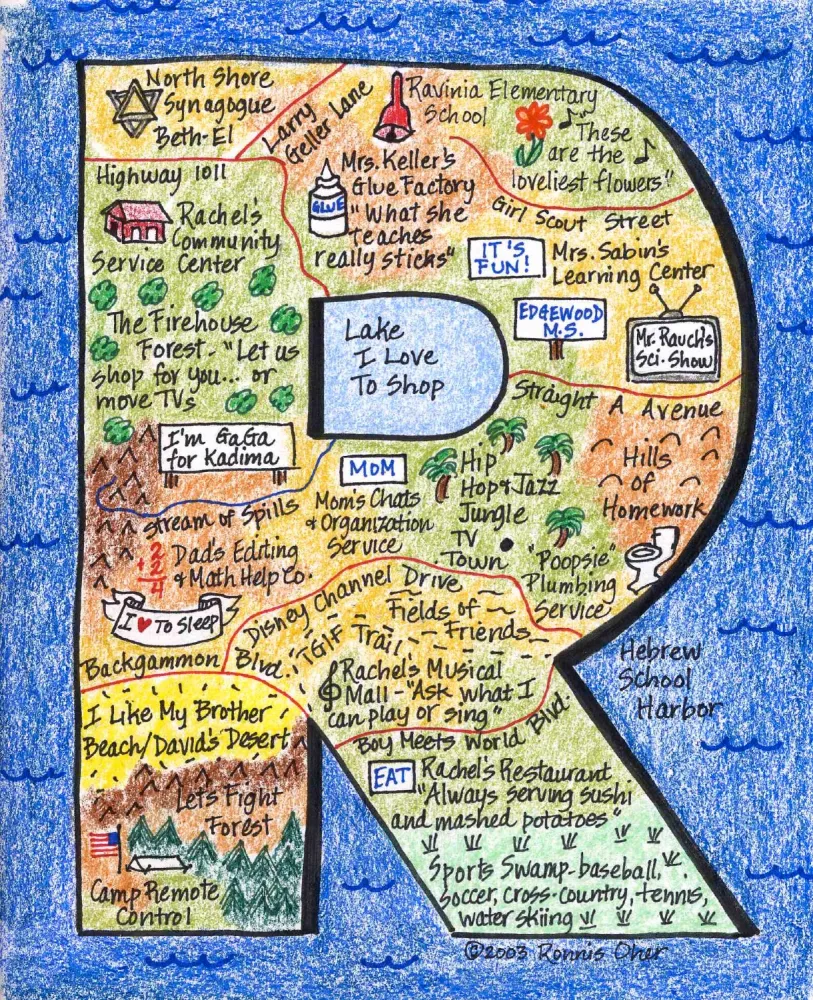 North Shore
Synagogue
Beth-El
Larry
Geller Lane
Ravinia Elementary
School
These
are the
loveliest flowers"
Highway 1011
Mrs. Keller's
Glue Factory
GLUE
"What she
teaches
really sticks"
Girl Scout Street
Rachel's
Community
Service Center
IT'S
FUN!
Mrs. Sabin's
Learning Center
The Firehouse
Forest- "Let us
shop for you... or
move TVs
Lake
I Love
To Shop
EDGEWOOD
M.S.
Mr. Rauch's
Sci. Show
Straight A Avenue
I'm GaGa
for Kadima
Hills
of
Homework
MOM
Mom's Chats
& Organization
Service
Hip
Hop & Jazz
Jungle
TV
Town
Stream of Spills
2
+2
4
Dad's Editing
& Math Help Co.
"Poopsie"
Plumbing
Service
I ♥ To Sleep
Disney Channel Drive
Fields of
Friends
Backgammon Blvd.
TGIF Trail
Hebrew
School
Harbor
Rachel's Musical
Mall - "Ask what I
can play or sing"
I Like My Brother
Beach/David's Desert
Boy Meets World Blvd.
EAT
Rachel's Restaurant
"Always serving sushi
and mashed potatoes"
Let's Fight
Forest
Sports Swamp-baseball,
soccer, cross-country, tennis,
water skiing
Camp Remote
Control
©2003 Ronnis Oher